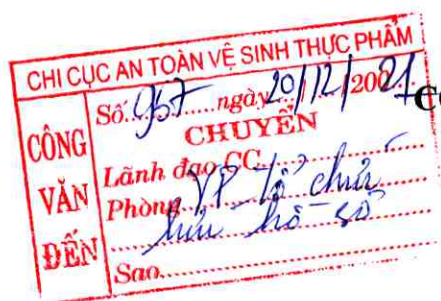 CHI CỤC AN TOÀN VỆ SINH THỰC PHẨM
CÔNG VĂN ĐẾN
Số: 957 ngày 20/12/2021
CHUYỂN
Lãnh đạo CC
Phòng VP - tổ chức
lưu hồ sơ
Sao